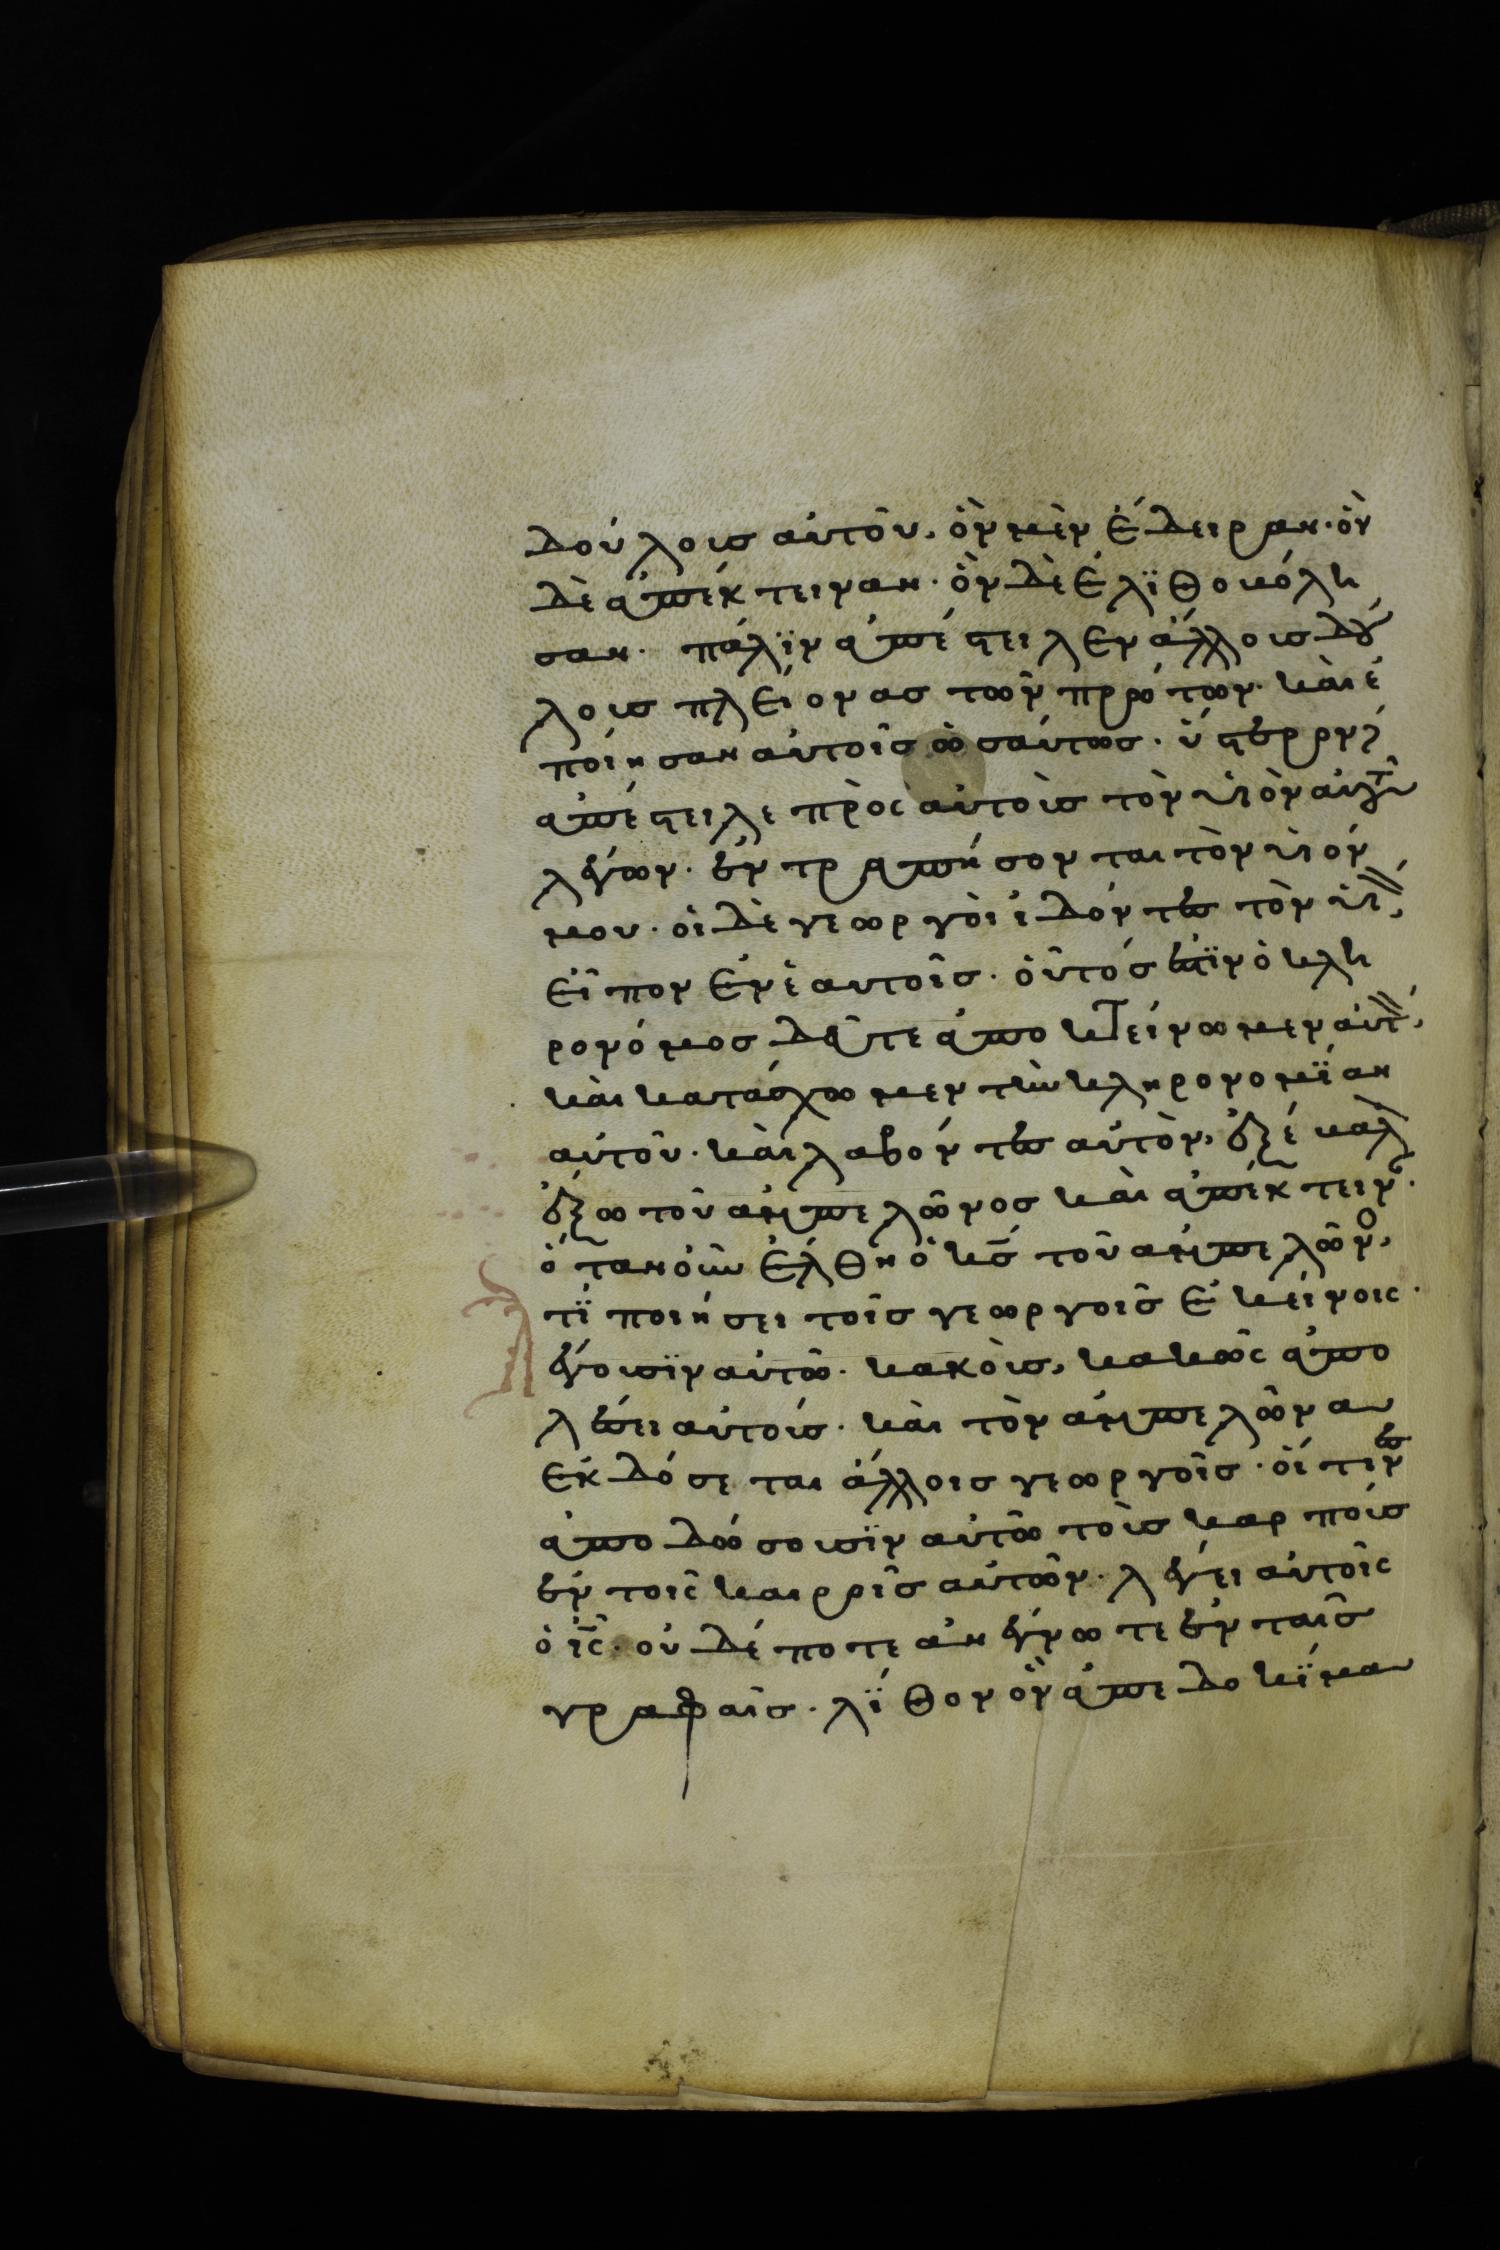 δούλοις αὐτοῦ, ὃν μὲν ἔδειραν· ὃν
δὲ ἀπέκτειναν· ὃν δὲ ἐλϊθοβόλη
σαν· πάλϊν ἀπέστειλεν ἄλλοις δού
λοις πλείονας τῶν πρώτων· καὶ ἐ
ποίησαν αὐτοῖς ὡσαύτως· ὕστερον
ἀπέστειλε πρὸς αὐτοὺς τὸν υἱὸν αὐτοῦ
λέγων· ἐντραπήσονται τὸν υἱόν
μου· οἱ δὲ γεωργοὶ ἰδόντες τὸν υἱ,
εἶπον ἐν ἑαυτοῖς· οὗτός ἐστϊν ὁ κλη
ρονόμος δεῦτε ἀποκτείνωμεν αὐτ,
καὶ κατάσχωμεν τὴν κληρονομΐαν
αὐτοῦ· καὶ λαβόντες αὐτὸν, ἐξέβαλ
ἔξω τοῦ ἀμπελῶνος καὶ ἀπέκτειν·
ὅταν οὖν ἔλθη ὁ κς τοῦ ἀμπελῶνο,
τΐ ποιήσει τοῖς γεωργοῖς ἐκείνοις·
λέγουσϊν αὐτῶ· κακοὺς, κακῶς ἀπο
λέσει αὐτούς· καὶ τὸν ἀμπελῶνα
ἐκδόσεται ἄλλοις γεωργοῖς· οἵτινες
ἀποδώσουσϊν αὐτῶ τοὺς καρπούς
ἐν τοῖς καιροῖς αὐτῶν· λέγει αὐτοῖς
ὁ ις· οὐδέποτε ἀνέγνωτε ἐν ταῖς
γραφαῖς· λΐθον ὃν ἀπεδοκΐμα